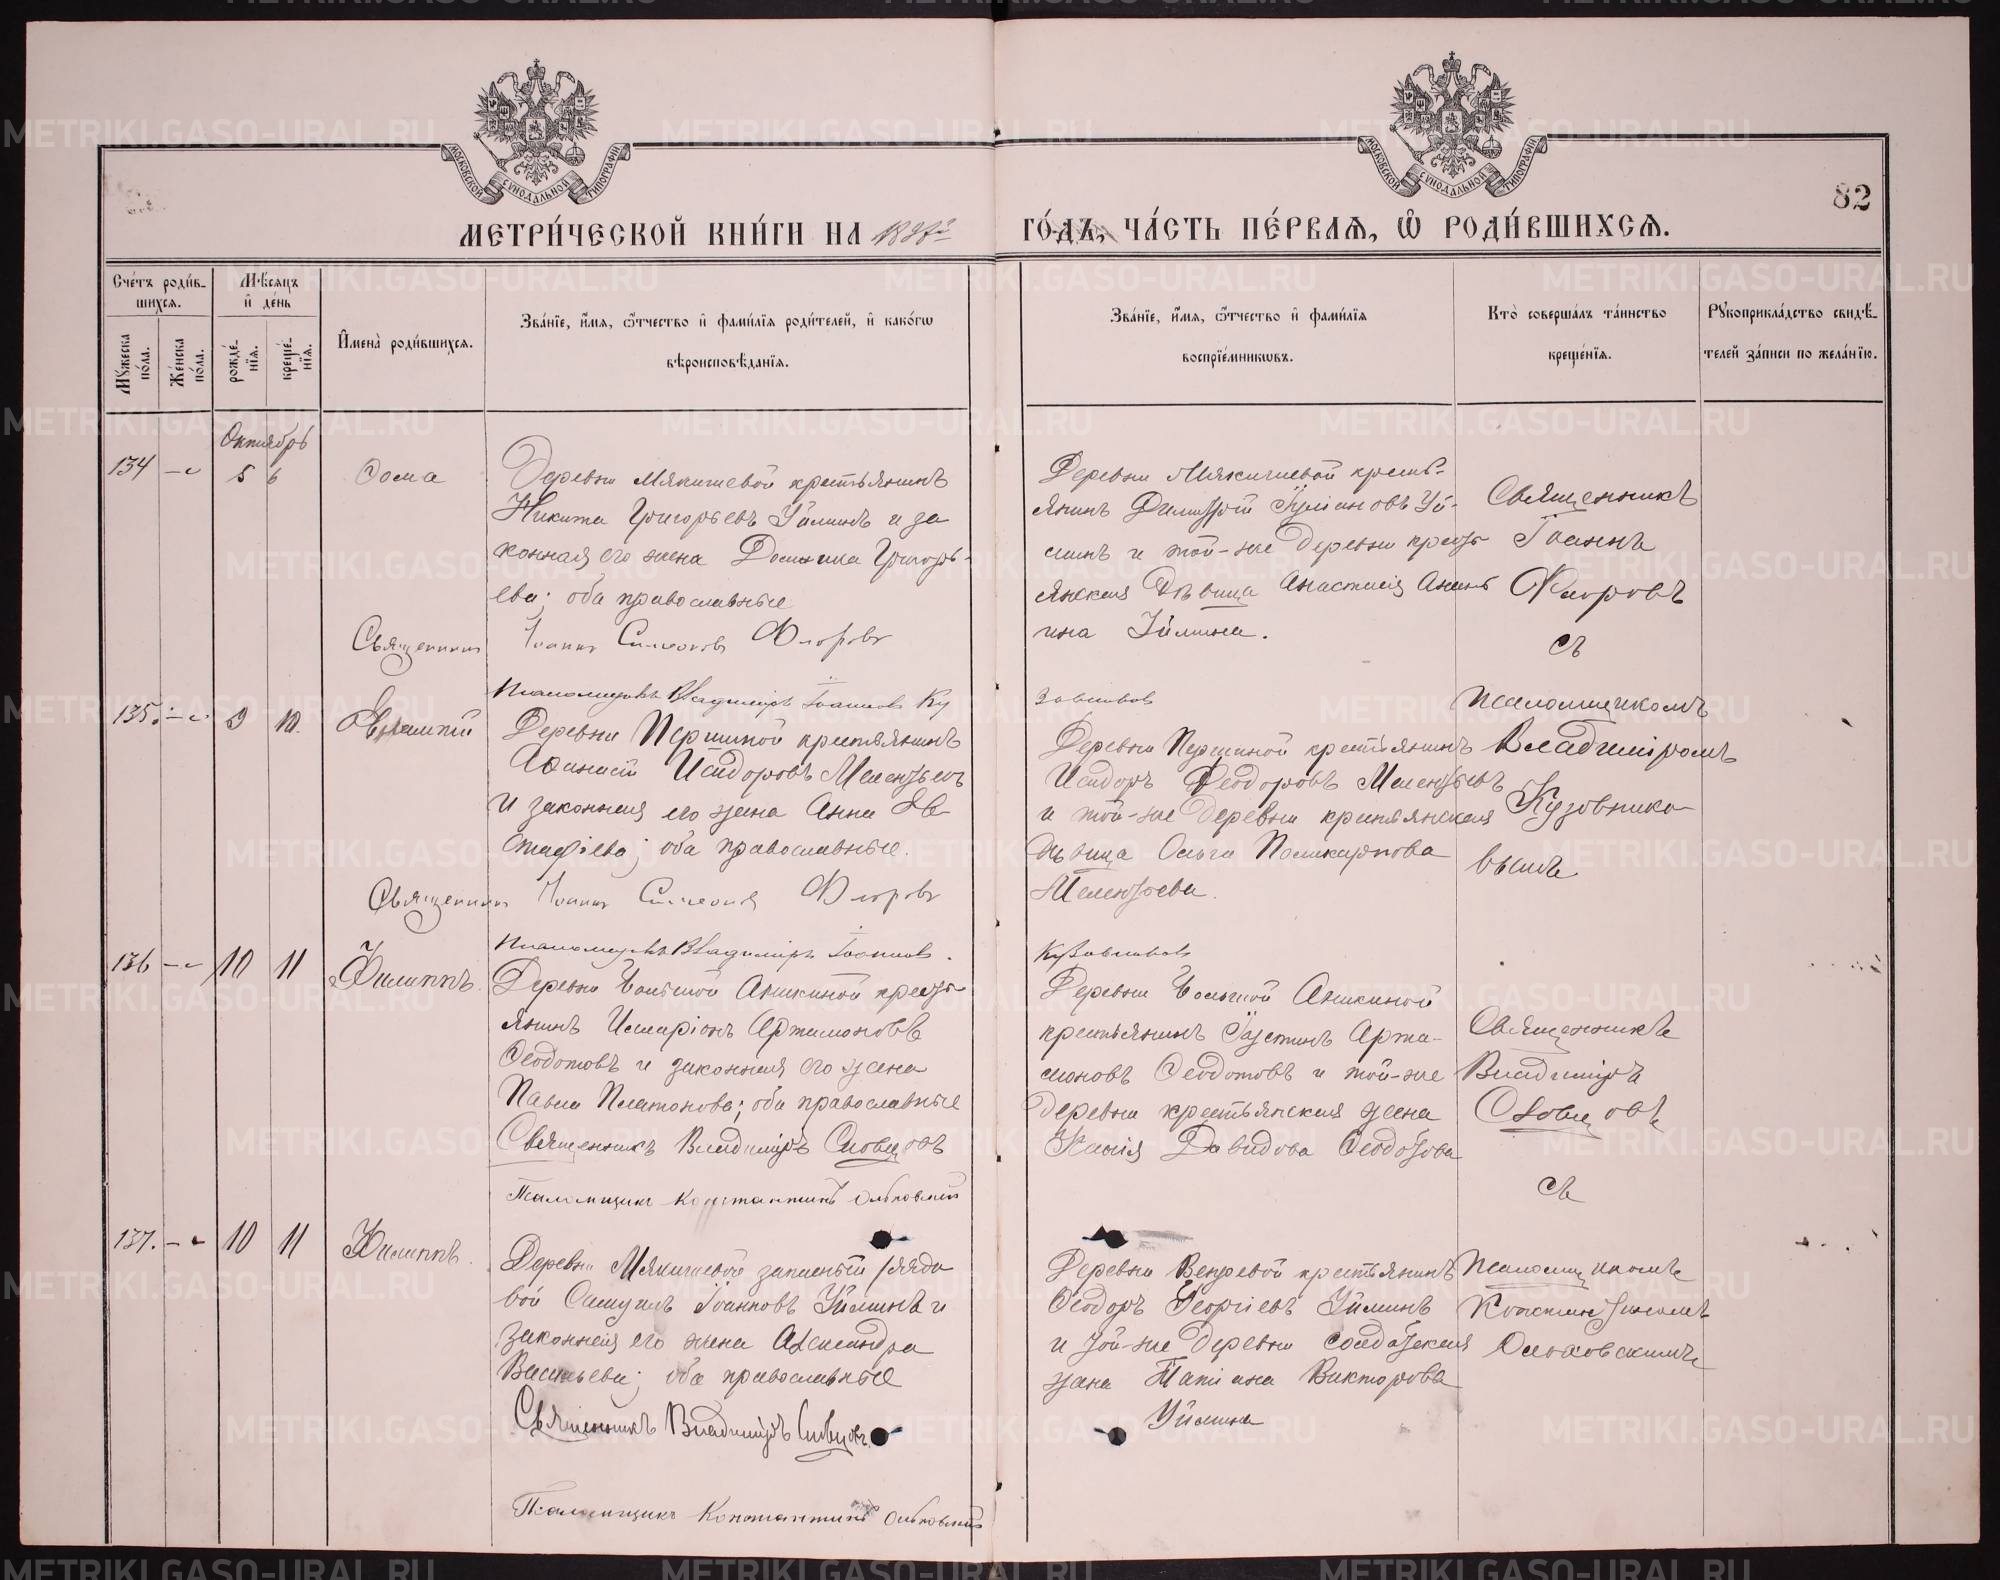 МОСКОВСКОЙ СѴНОДАЛЬНОЙ ТИПОГРАФІИ
МОСКОВСКОЙ СѴНОДАЛЬНОЙ ТИПОГРАФІИ
82
МЕТРИ́ЧЕСКОЙ КНИ́ГИ НА
ГО́ДЪ, ЧА́СТЬ ПЕ́РВАѦ, Ѡ҆ РОДИ́ВШИХСѦ.
Сче́тъ роди́в-
шихсѧ.
Мꙋ́жеска по́ла.
Же́нска по́ла.
Мѣ́сѧцъ
и҆ де́нь
рожде́-
нїѧ.
креще́-
нїѧ.
И҆мена̀ роди́вшихсѧ.
Зва́нїе, и҆́мѧ, ѻ҆́тчество и҆ фами́лїѧ роди́телей, и҆ како́гѡ
вѣроисповѣ́данїѧ.
Зва́нїе, и҆́мѧ, ѻ҆́тчество и҆ фами́лїѧ
воспрїе́мникѡвъ.
Кто̀ соверша́лъ та́инство
креще́нїѧ.
Рꙋкоприкла́дство свидѣ́-
телей за́писи по жела́нїю.
Октябрь
134 5 6
Ѳома
Деревни Мякишевой крестьянинъ
Никита Григорьевъ Уйминъ и за
конная его жена Домника Григорь-
ева; оба православные
Священникъ Іоаннъ Симеоновъ Флоровъ
Деревни Мякишевой кресть-
янинъ Димитрій Іуліановъ Уй-
минъ и той-же деревни кресть
янская дѣвица Анастасія
ина Уймина.
Священникъ
Іоаннъ
Флоровъ
съ
псаломщикомъ
Владиміромъ
Кузовнико-
вымъ
Псаломщикъ Владиміръ Іоанновъ Ку
зовниковъ
135. 9 10.
Евлампій
Деревни Першиной крестьянинъ
Аѳанасій Исидоровъ Мелентьевъ
и законная его жена Анна Ев
стафіева; оба православные.
Священникъ Іоаннъ Симеоновъ Флоровъ
Деревни Першиной крестьянинъ
Исидоръ Ѳеодоровъ Мелентьевъ
и той-же деревни крестьянская
дѣвица Ольга Поликарпова
Мелентьева.
Псаломщикъ Владиміръ Іоанновъ.
Кузовниковъ
136 10 11
Филиппъ.
Деревни Большой Аникиной кресть
янинъ Иларіонъ Артамоновъ
Ѳеодотовъ и законная его жена
Павла Платонова; оба православные
Священникъ Владиміръ Словцовъ
Псаломщикъ Константинъ Ольховскій
Деревни Большой Аникиной
крестьянинъ Іустинъ Арта-
моновъ Ѳеодотовъ и той-же
деревни крестьянская жена
Давидова Ѳеодотова
Священникъ
Владиміръ
Словцовъ
съ
137. 10 11
Филиппъ.
Деревни Мякишевой запасный рядо
вой Самуилъ Іоанновъ Уйминъ и
законная его жена Александра
Васильева; оба православные
Священникъ Владиміръ Словцовъ.
Псаломщикъ Константинъ Ольховскій
Деревни Вепревой крестьянинъ
Ѳеодоръ Георгіевъ Уйминъ
и той-же деревни солдатская
жена Татіана Викторова
Уймина
Псаломщикомъ
Константиномъ
Ольховскимъ